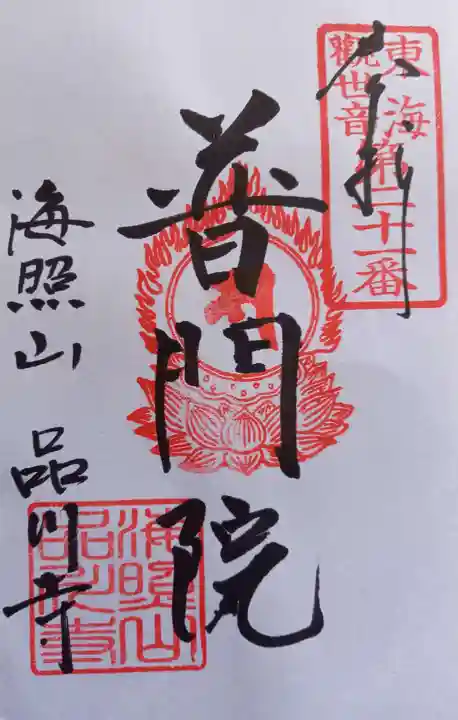 奉拝
東海
觀世音第三十一番
普門院
海照山 品川寺
海照山
品川寺